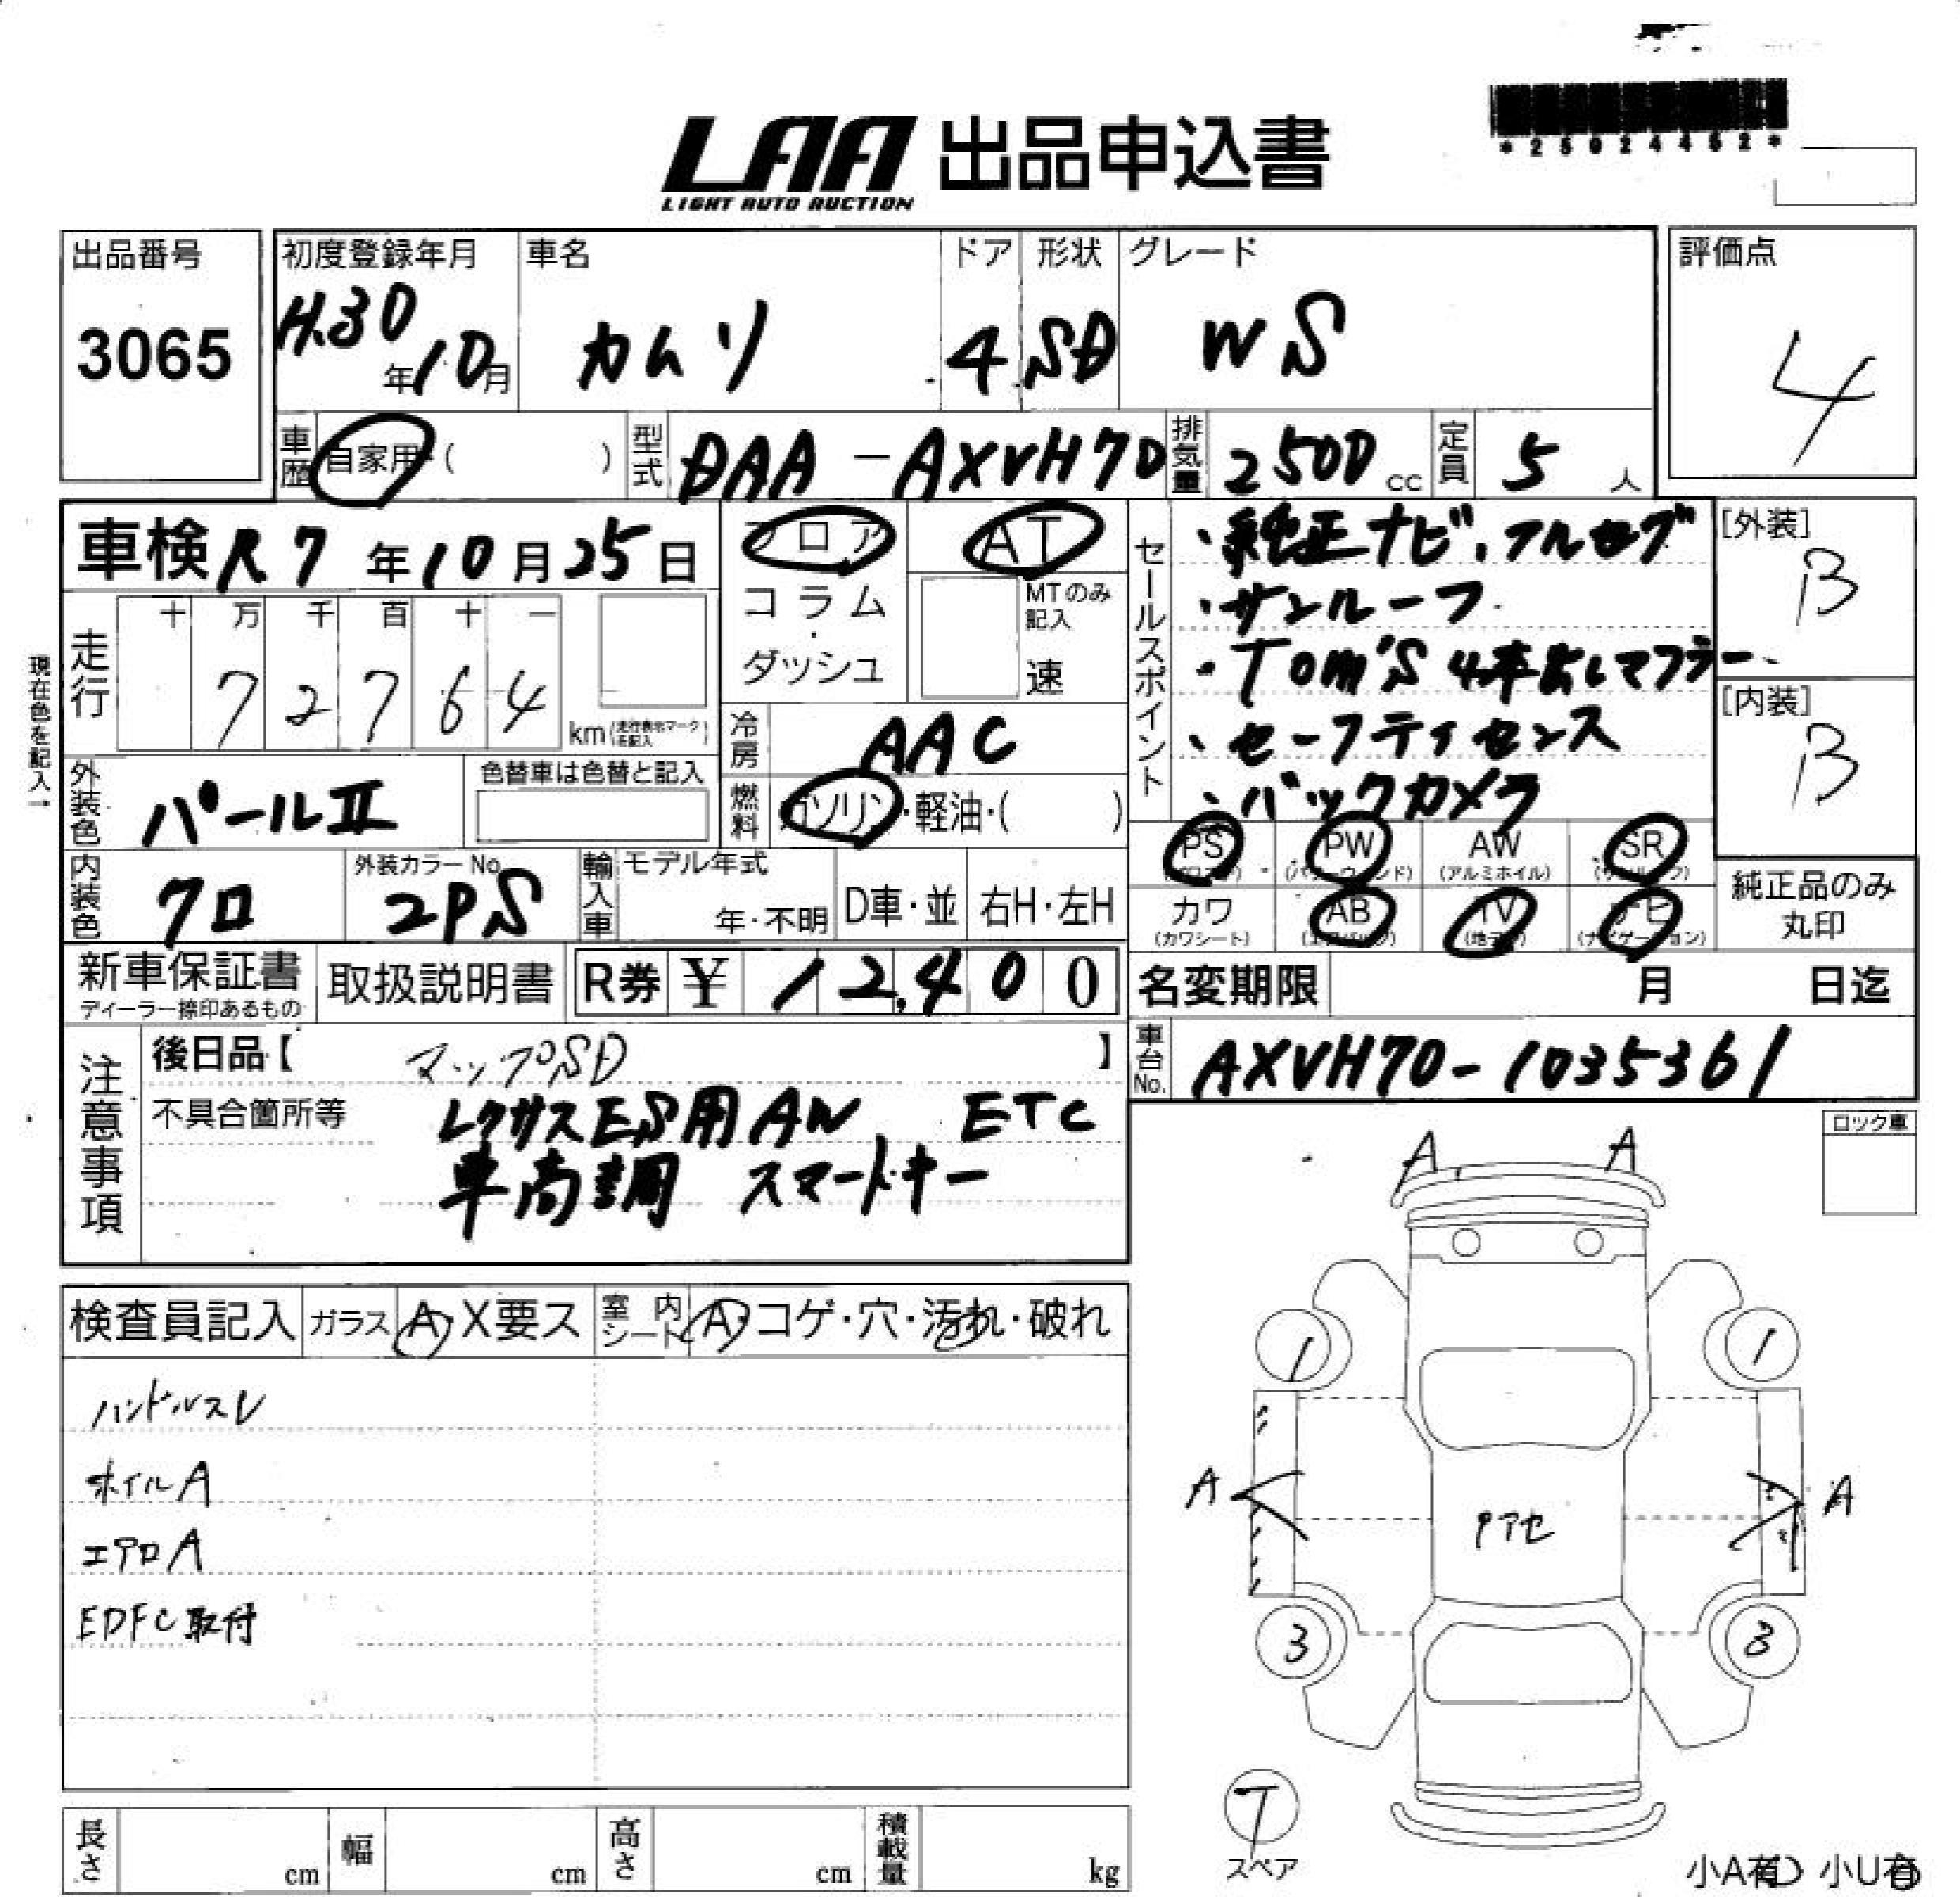 *25024452*
LAA 出品申込書
LIGHT AUTO AUCTION
出品番号
3065
初度登録年月
H.30年10月
車名
カムリ
ドア
4
形状
SD
グレード
WS
評価点
4
車歴 自家用・( )
型式 DAA-AXVH70
排気量 2500cc
定員 5人
車検 R7年10月25日
現在色を記入→
走行
十 万 千 百 十 一
7 2 7 6 4
km(走行表示マークを記入)
フロア
コラム
・
ダッシュ
AT
MTのみ記入
速
冷房 AAC
燃料 ガソリン・軽油・( )
外装色 パールⅡ
色替車は色替と記入
内装色 クロ
外装カラーNo.
2PS
輸入車
モデル年式
年・不明
D車・並
右H・左H
セールスポイント
・純正ナビ、フルセグ
・サンルーフ
・Tom'S 4本出しマフラー
・セーフティセンス
・バックカメラ
[外装]
B
[内装]
B
PS (パワステ)
PW (パワーウィンド)
AW (アルミホイル)
SR (サンルーフ)
カワ (カワシート)
AB (エアバッグ)
TV (地デジ)
ナビ (ナビゲーション)
純正品のみ
丸印
新車保証書
ディーラー捺印あるもの
取扱説明書
R券 ¥ 12,400
名変期限 月 日迄
車台No. AXVH70-1035361
注意事項
後日品【 マップSD 】
不具合箇所等
レクサスES用AW ETC
車高調 スマートキー
ロック車
検査員記入
ガラス A・X要ス
室内シート A・コゲ・穴・汚れ・破れ
ハンドルスレ
ホイルA
エアロA
EDFC取付
A A
1 1
A A
3 3
T
スペア
長さ cm
幅 cm
高さ cm
積載量 kg
小A有 小U有